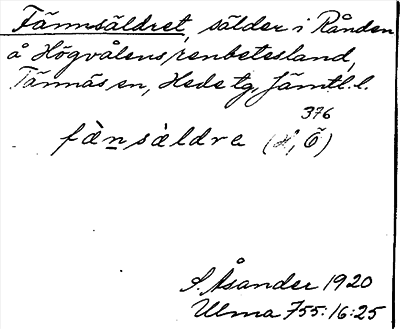 Fännsäldret, sälder i Rånden
å Högvålens renbetesland,
Tännäs sn, Hede tg, Jämtl. l.
376
fä̀nsäldre (H, Õ)
S. Åsander 1920
Ulma 755:16:25